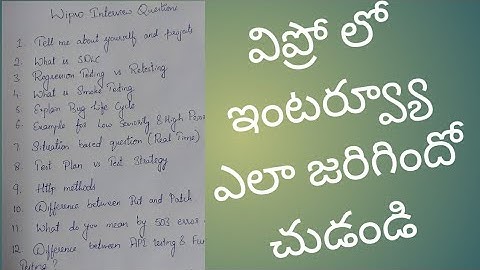 Wipro Interview Questions
1. Tell me about yourself and projects
2. What is SDLC
3. Regression Testing vs Retesting
4. What is Smoke Testing
5. Explain Bug Life Cycle
6. Example for Low Severity & High
7. Situation based question (Real Time)
8. Test Plan vs Test Strategy
9. Http methods
10. Difference between Put and Patch
11. What do you mean by 503 error
12. Difference between API testing &
Testing ?
విప్రో లో
ఇంటర్వ్యూ
ఎలా జరిగిందో
చుడండి